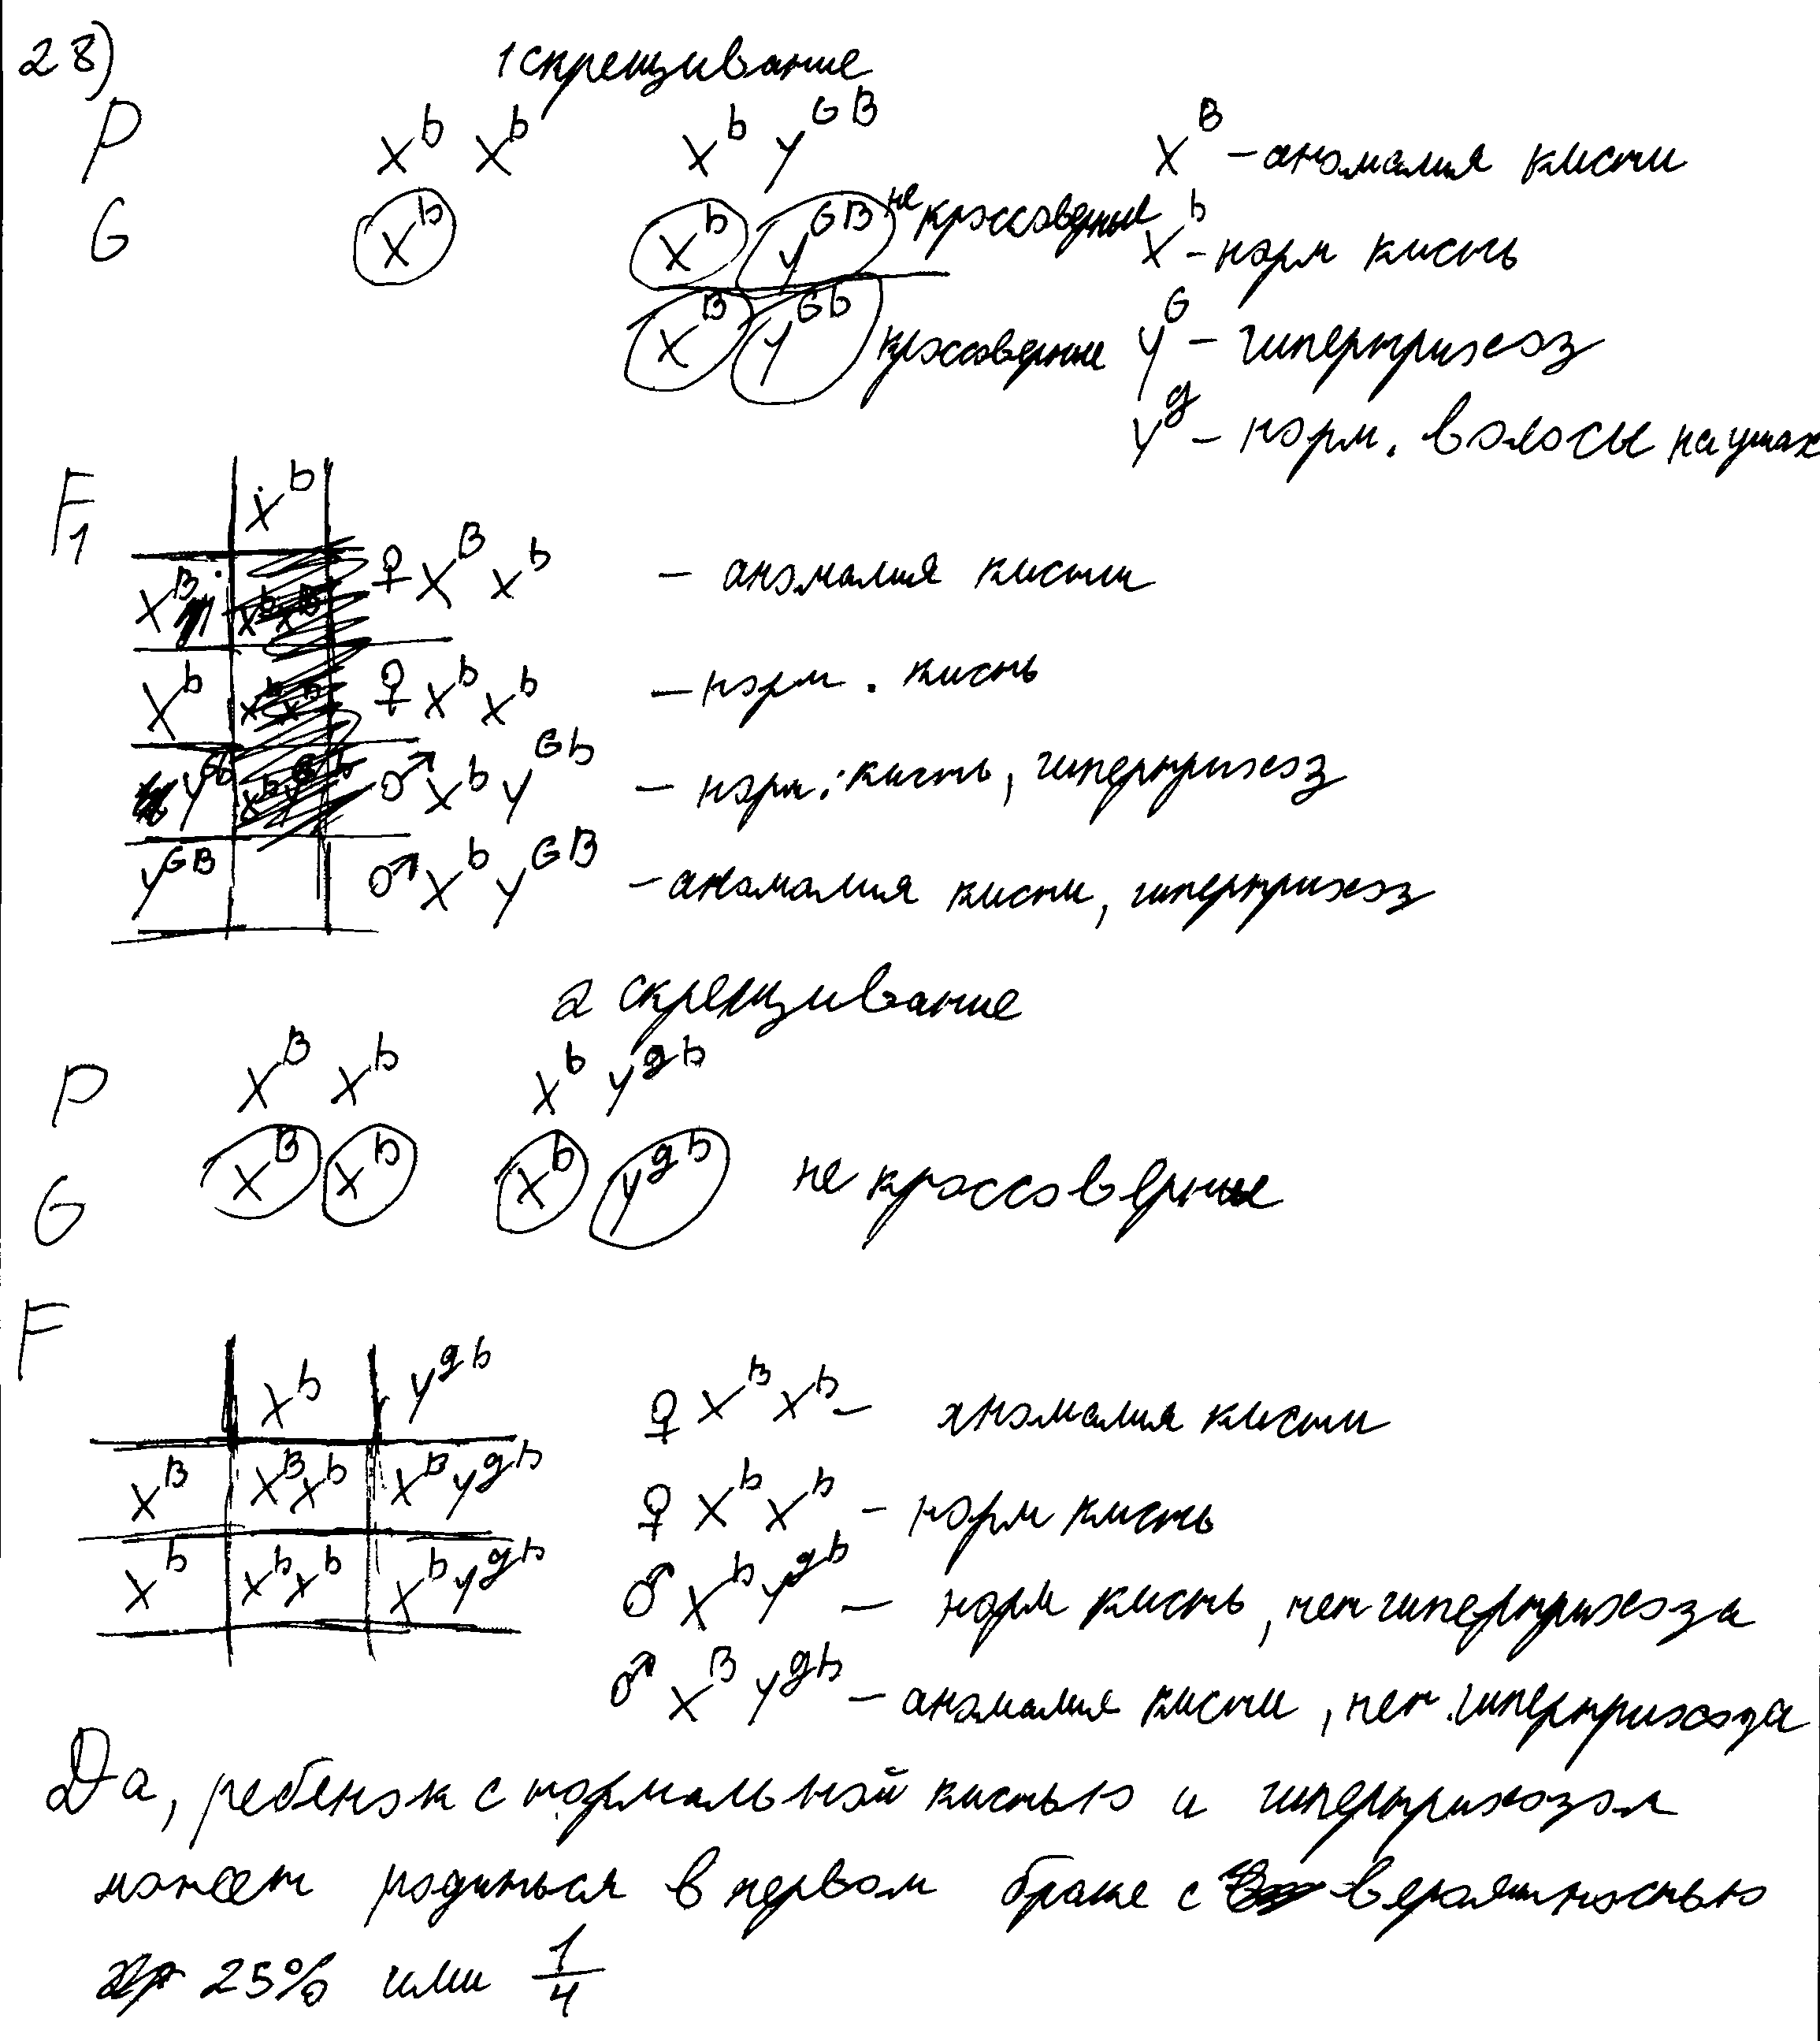 28) 1 скрещивание
P X^b X^b X^b Y^GB X^B – аномалия кисти
G X^b X^b Y^GB не кроссоверные X^b – норм кисть
X^B Y^Gb кроссоверные Y^G – гипертрихоз
Y^g – норм. волосы на ушах
F1 X^b
X^B ♀ X^B X^b – аномалия кисти
X^b ♀ X^b X^b – норм. кисть
Y^Gb ♂ X^b Y^Gb – норм. кисть, гипертрихоз
Y^GB ♂ X^b Y^GB – аномалия кисти, гипертрихоз
2 скрещивание
P X^B X^b X^b Y^gb
G X^B X^b X^b Y^gb не кроссоверные
F
X^b Y^gb ♀ X^B X^b – аномалия кисти
X^B X^B X^b X^B Y^gb ♀ X^b X^b – норм кисть
X^b X^b X^b X^b Y^gb ♂ X^b Y^gb – норм кисть, нет гипертрихоза
♂ X^B Y^gb – аномалия кисти, нет гипертрихоза
Да, ребенок с нормальной кистью и гипертрихозом
может родиться в первом браке с вероятностью
25% или 1/4